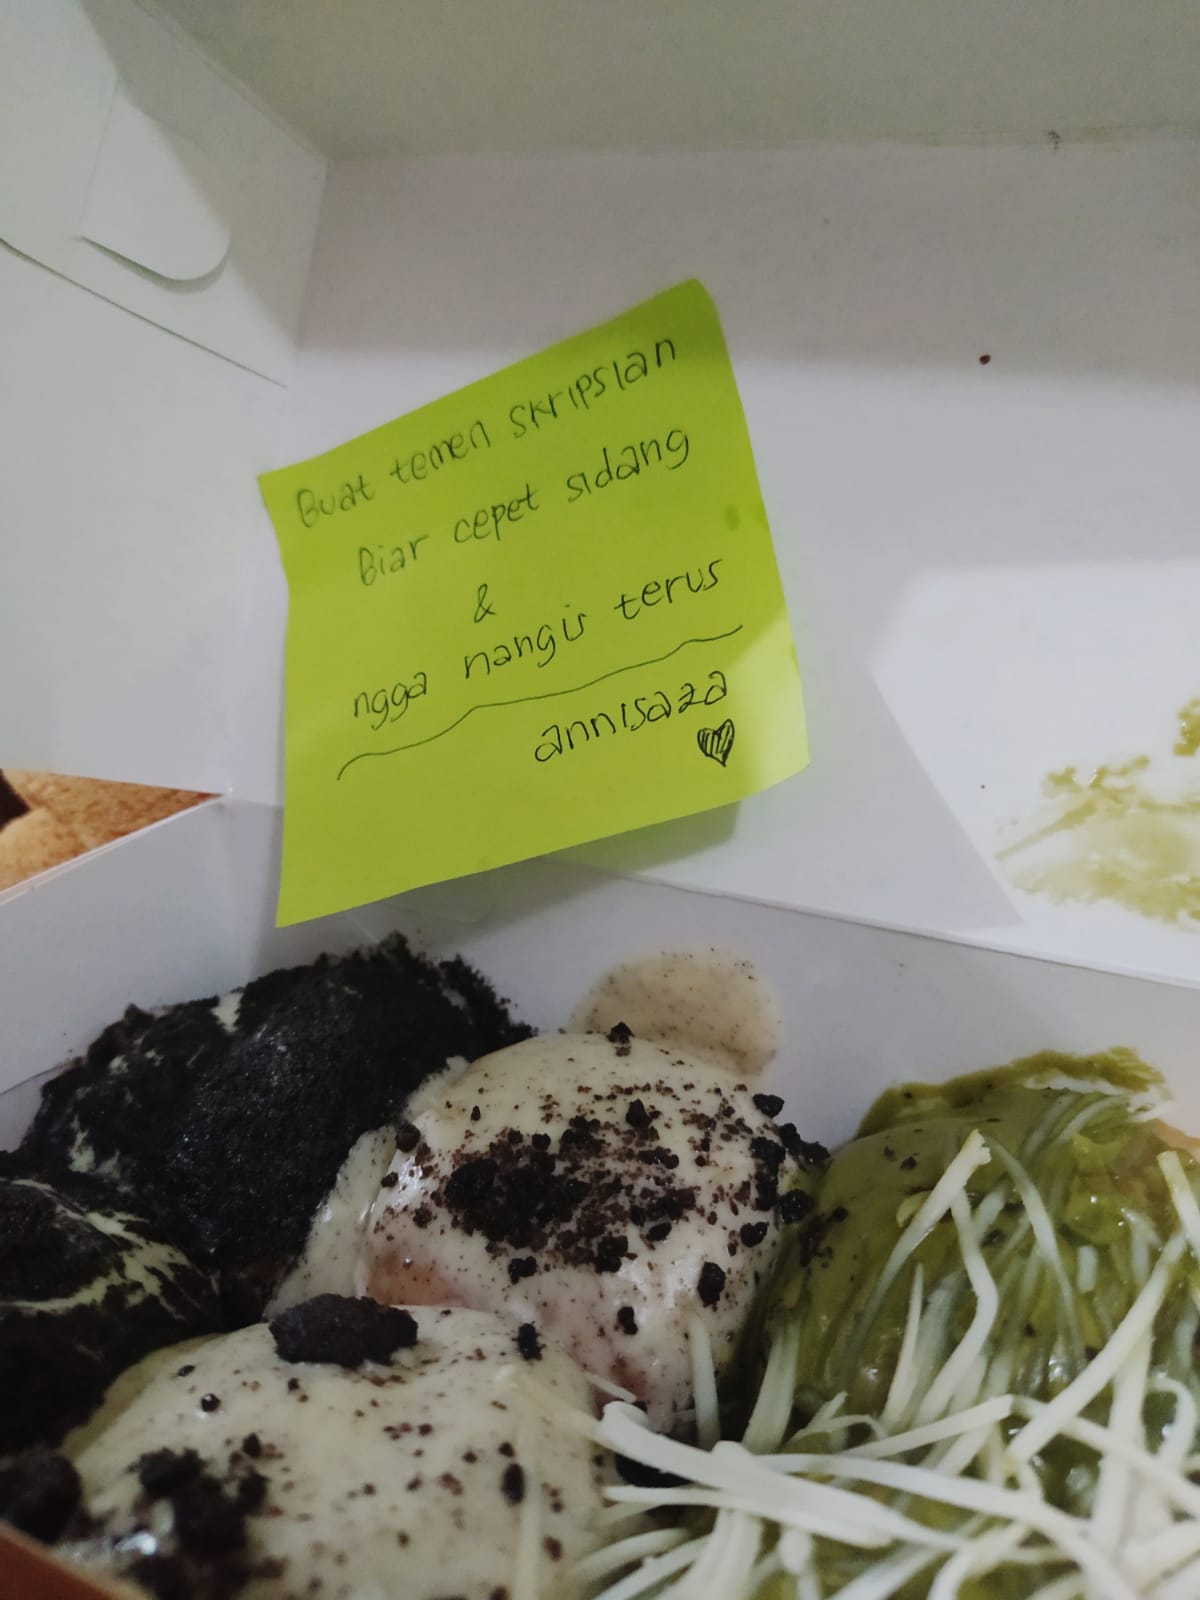 Buat temen skripsian
Biar cepet sidang
&
ngga nangis terus
annisaza